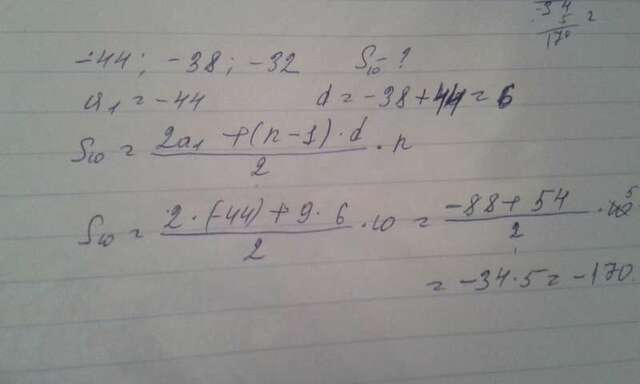 -34
5
170 =
-44; -38; -32 S₁₀ - ?
a₁ = -44 d = -38 + 44 = 6
S₁₀ = (2a₁ + (n - 1) · d) / 2 · n
S₁₀ = (2 · (-44) + 9 · 6) / 2 · 10 = (-88 + 54) / 2 · 10 5
= -34 · 5 = -170.